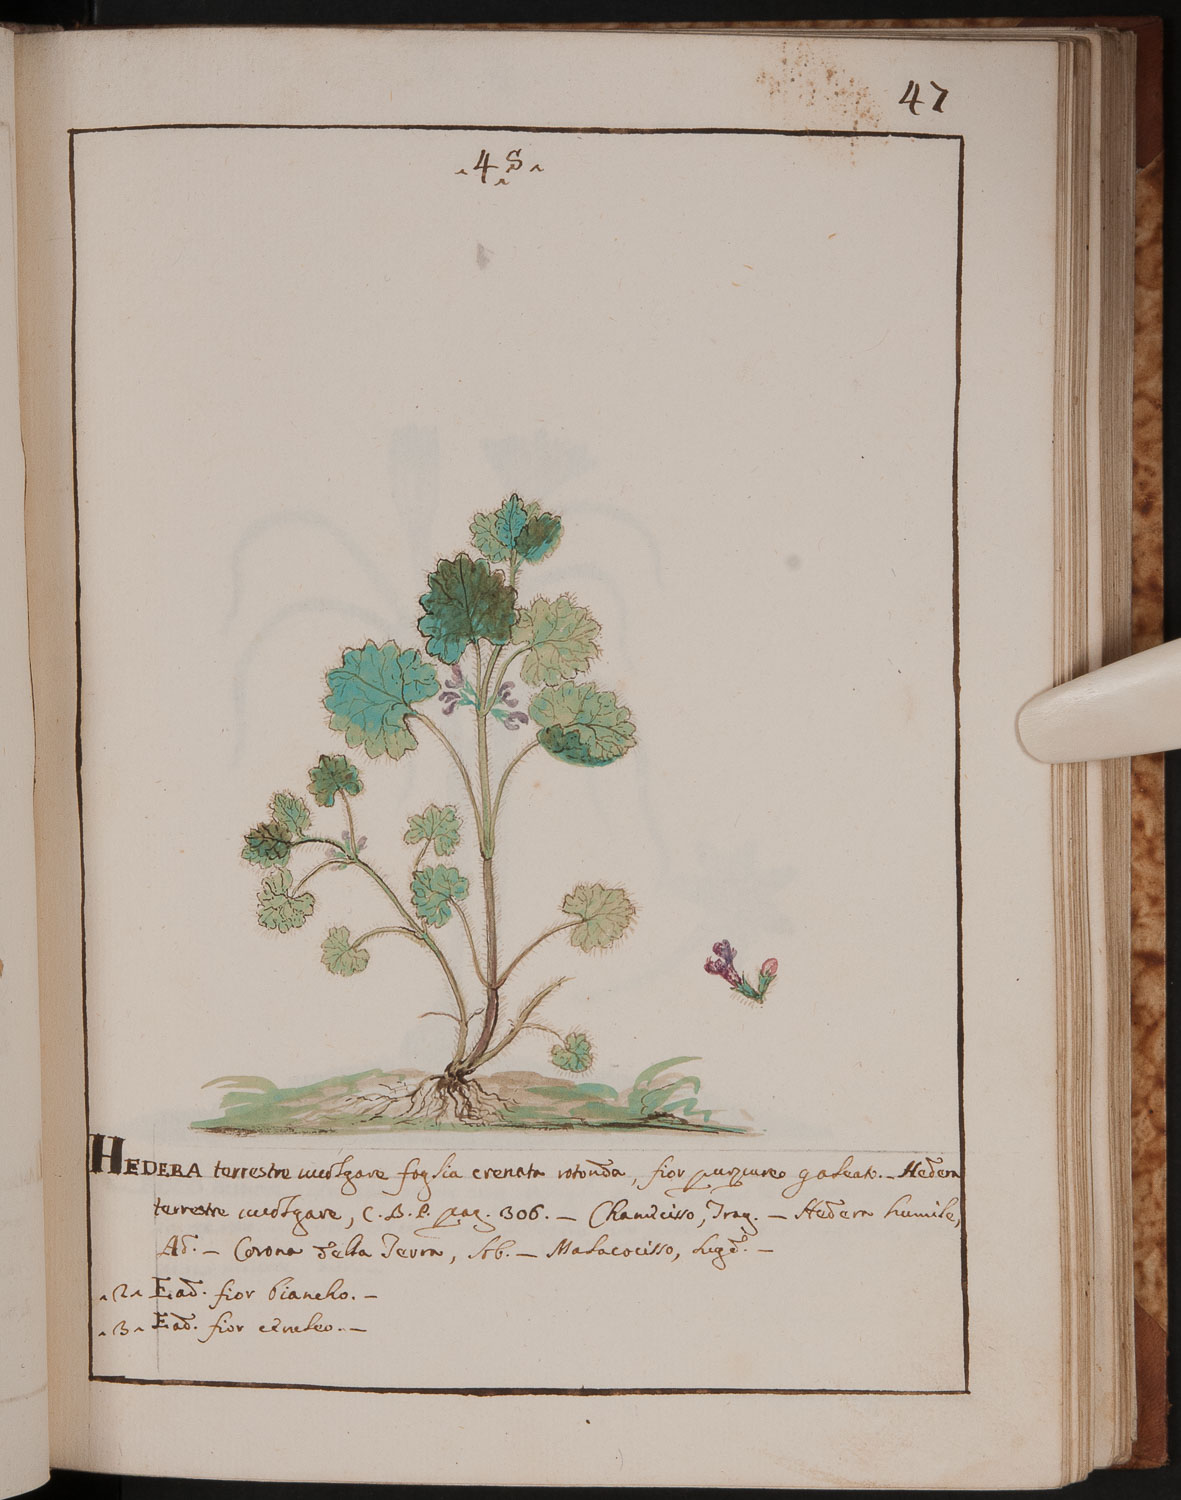 47
.4S.
HEDERA terrestre uuolgare foglia crenata rotonda, fior purpureo galeato. - Hedera
terrestre uuolgare, C.B.P. pag. 306. - Chamecisso, Trag. - Hedera humile,
Ad. - Corona della Terra, Lob. - Malacocisso, Lugd. -
.2. Ead. fior biancho. -
.3. Ead. fior ceruleo. -